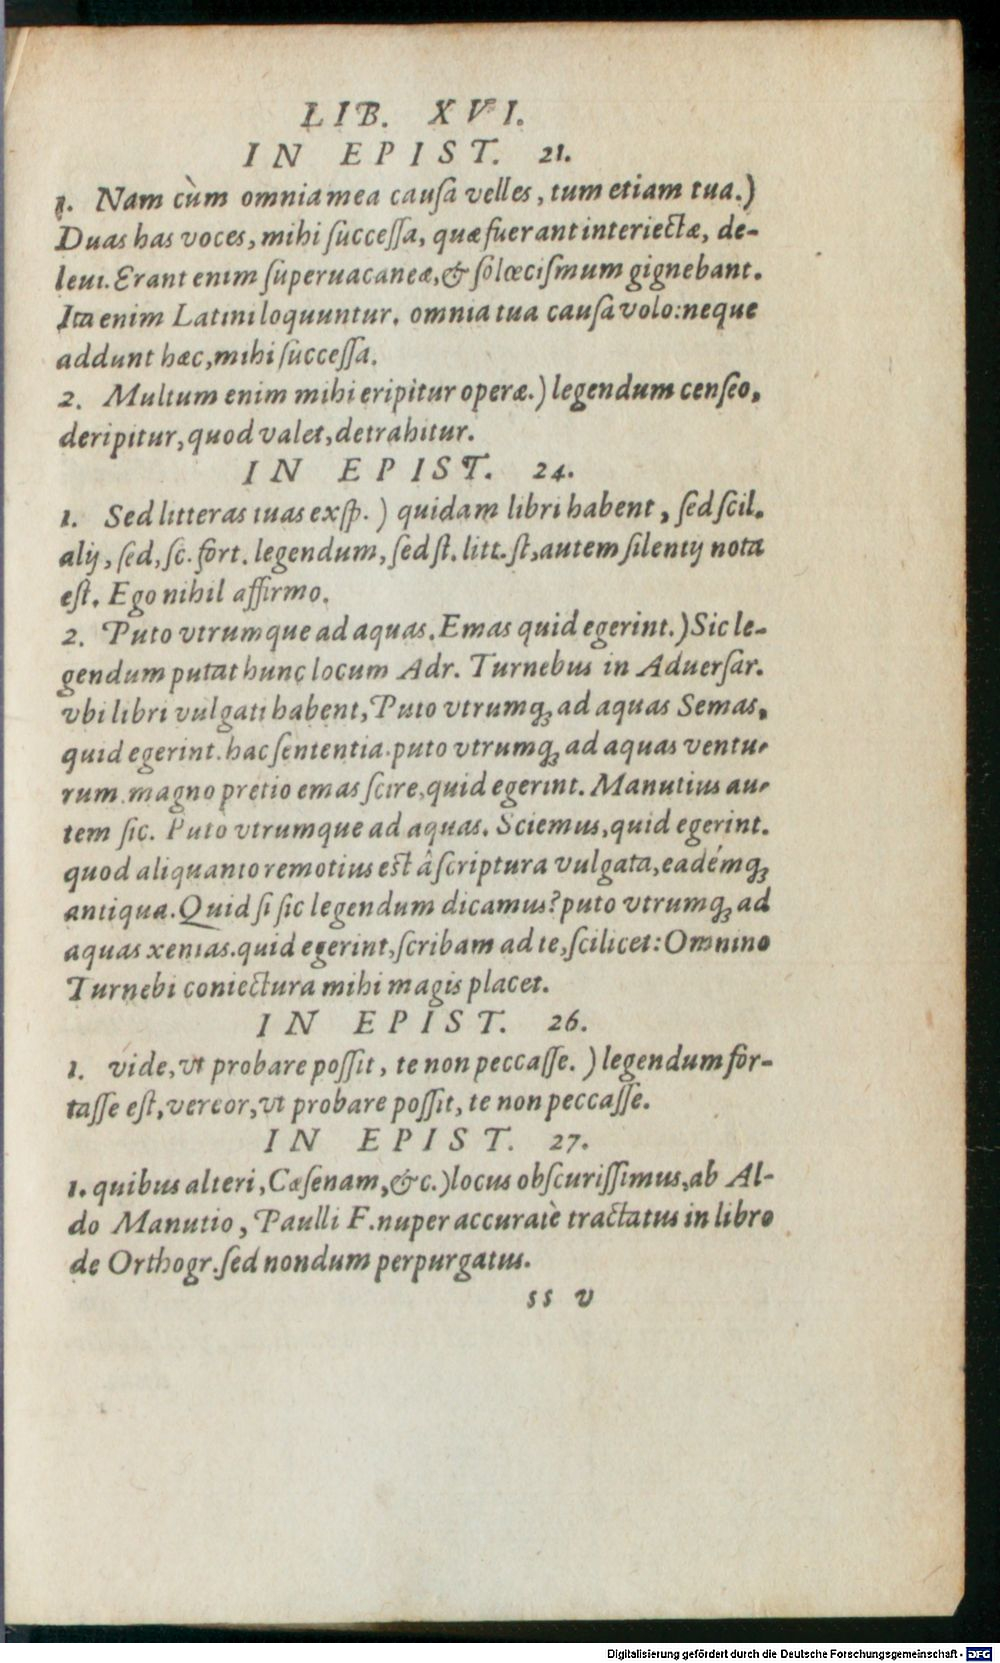 LIB. XVI.
IN EPIST. 21.
1. Nam cùm omnia mea causa velles, tum etiam tua.)
Duas has voces, mihi successa, quæ fuerant interiectæ, de-
leui. Erant enim superuacaneæ, & solœcismum gignebant.
Ita enim Latini loquuntur. omnia tua causa volo: neque
addunt hæc, mihi successa.
2. Multum enim mihi eripitur operæ.) legendum censeo,
deripitur, quod valet, detrahitur.
IN EPIST. 24.
1. Sed litteras tuas exsp.) quidam libri habent, sed scil.
alij, sed, sc. fort. legendum, sed st. litt. st, autem silentij nota
est. Ego nihil affirmo.
2. Puto vtrumque ad aquas. Emas quid egerint.) Sic le-
gendum putat hunc locum Adr. Turnebus in Aduersar.
vbi libri vulgati habent, Puto vtrumq; ad aquas Semas,
quid egerint. hac sententia. puto vtrumq; ad aquas ventu-
rum. magno pretio emas scire, quid egerint. Manutius au-
tem sic. Puto vtrumque ad aquas. Sciemus, quid egerint.
quod aliquanto remotius est â scriptura vulgata, eadémq;
antiqua. Quid si sic legendum dicamus? puto vtrumq; ad
aquas xenias. quid egerint, scribam ad te, scilicet: Omnino
Turnebi coniectura mihi magis placet.
IN EPIST. 26.
1. vide, vt probare possit, te non peccasse.) legendum for-
tasse est, vereor, vt probare possit, te non peccasse.
IN EPIST. 27.
1. quibus alteri, Cæsenam, &c.) locus obscurissimus, ab Al-
do Manutio, Paulli F. nuper accuratè tractatus in libro
de Orthogr. sed nondum perpurgatus.
ss v
Digitalisierung gefördert durch die Deutsche Forschungsgemeinschaft - DFG